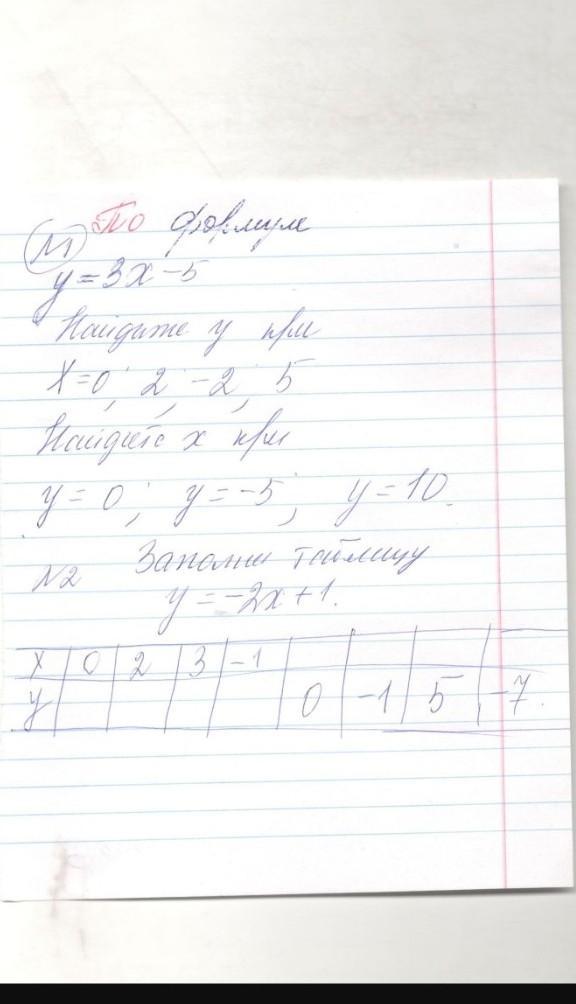 №1 По формуле
y = 3x - 5
Найдите y при
x = 0; 2; -2; 5
Найдите x при
y = 0; y = -5; y = 10.
№2 Заполни таблицу
y = -2x + 1.
x 0 2 3 -1
y 0 -1 5 -7.